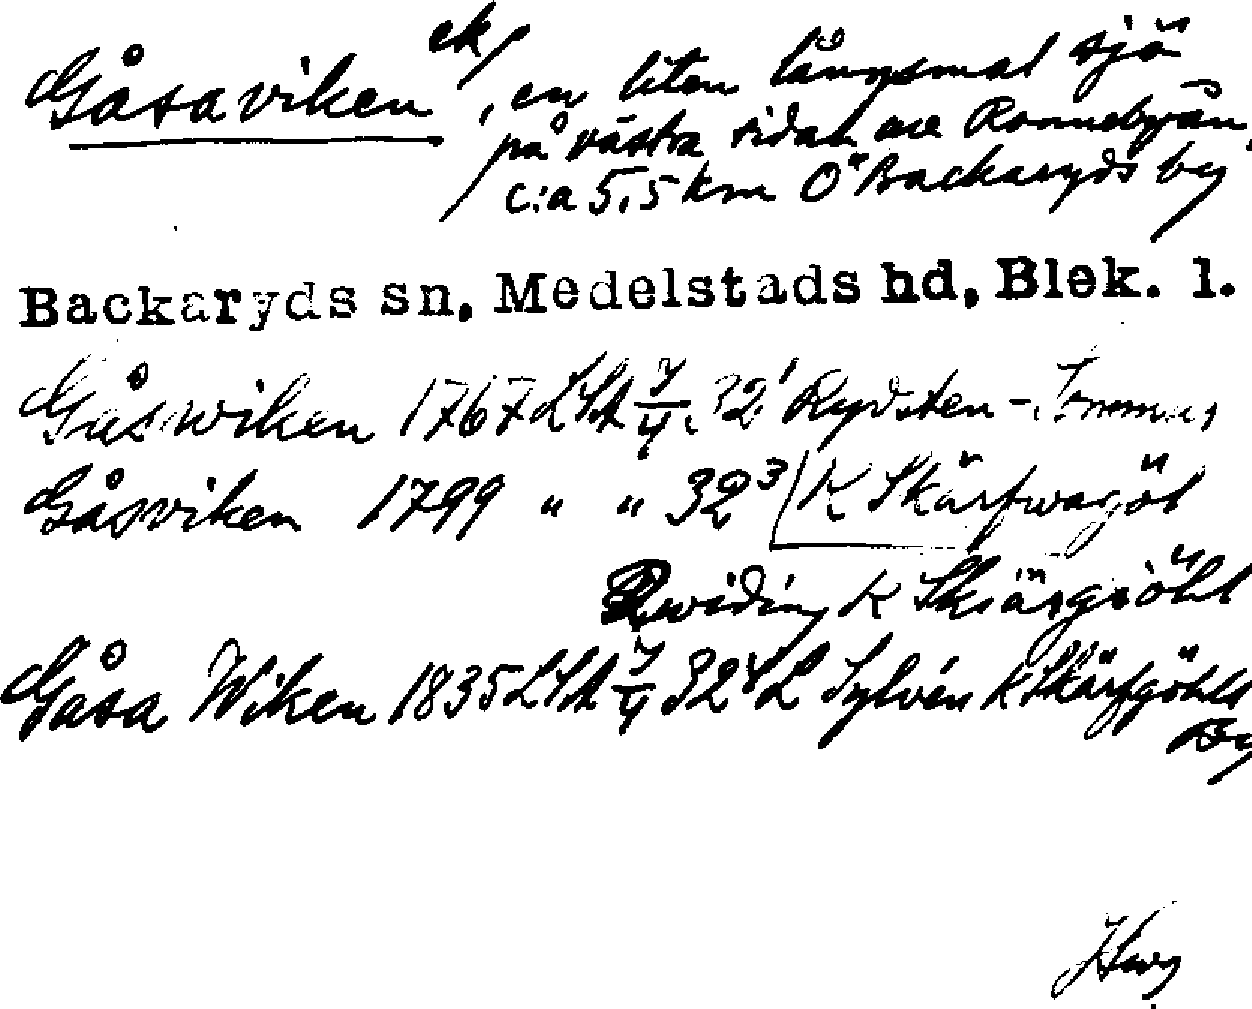 Gåsaviken ek/, en liten långsmal sjö
på västra sidan av Ronnebyån,
c:a 5,5 km Ö Backaryds by
Backaryds sn, Medelstads hd, Blek. l.
Gåswiken 1767 LSA 7/4. 32¹ Rydsten -
Gåsviken 1799 " " 32³ K Skärfwagöl
Qwiding K Skiärgiöhl
Gåsa Wiken 1835 LSA 7/4 32⁴ L Sylvén K Skärfgöhls
By